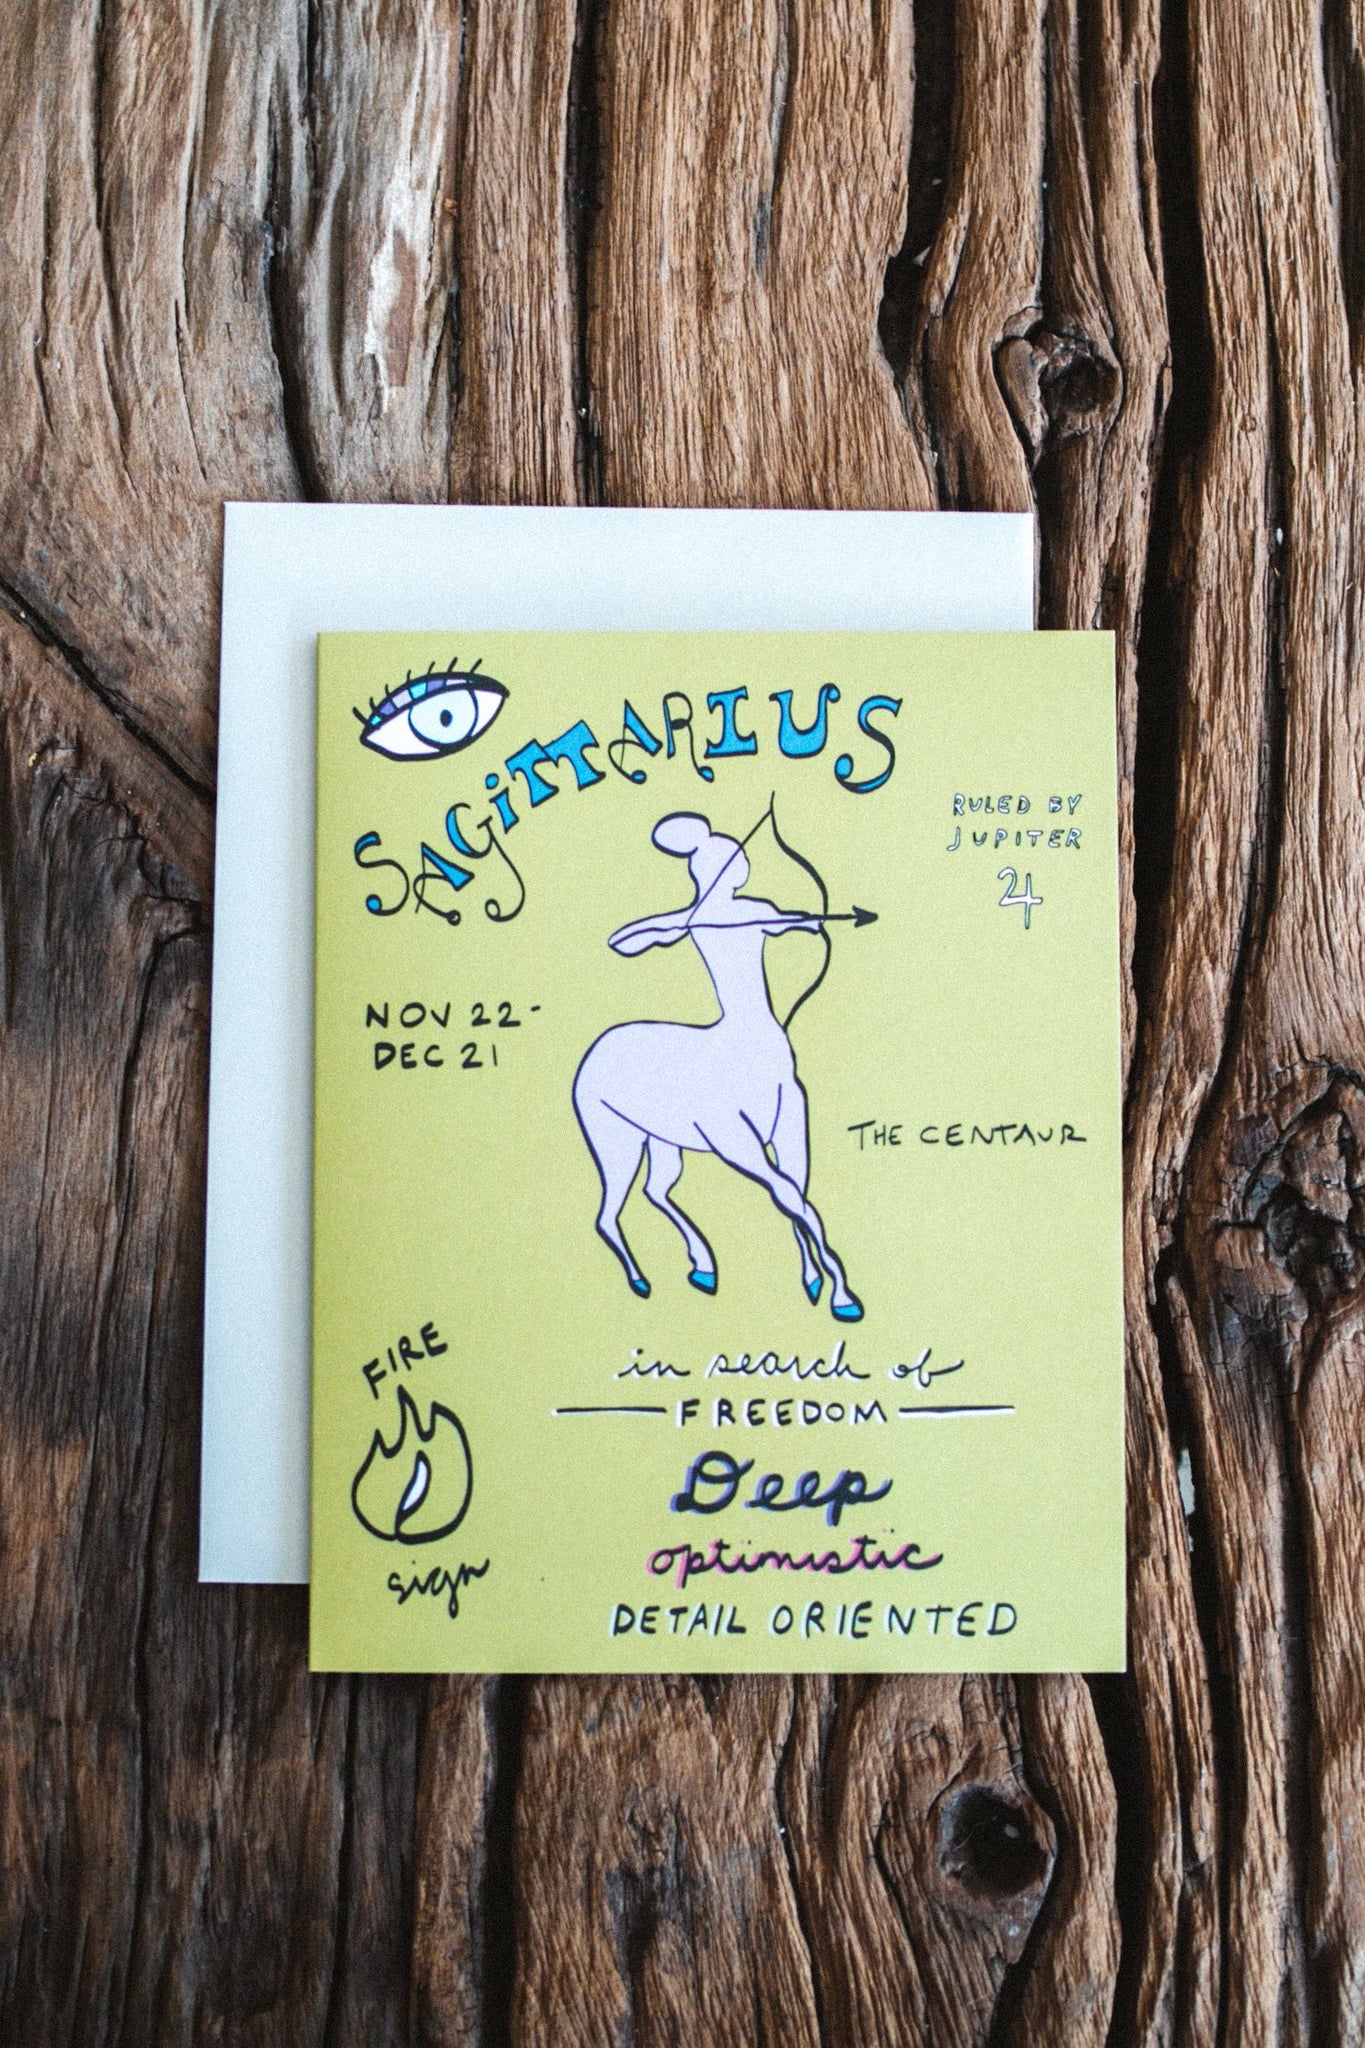 SAGiTTARIUS
RULED BY
JUPITER
♃
NOV 22-
DEC 21
THE CENTAUR
FIRE
sign
in search of
FREEDOM
Deep
optimistic
DETAIL ORIENTED